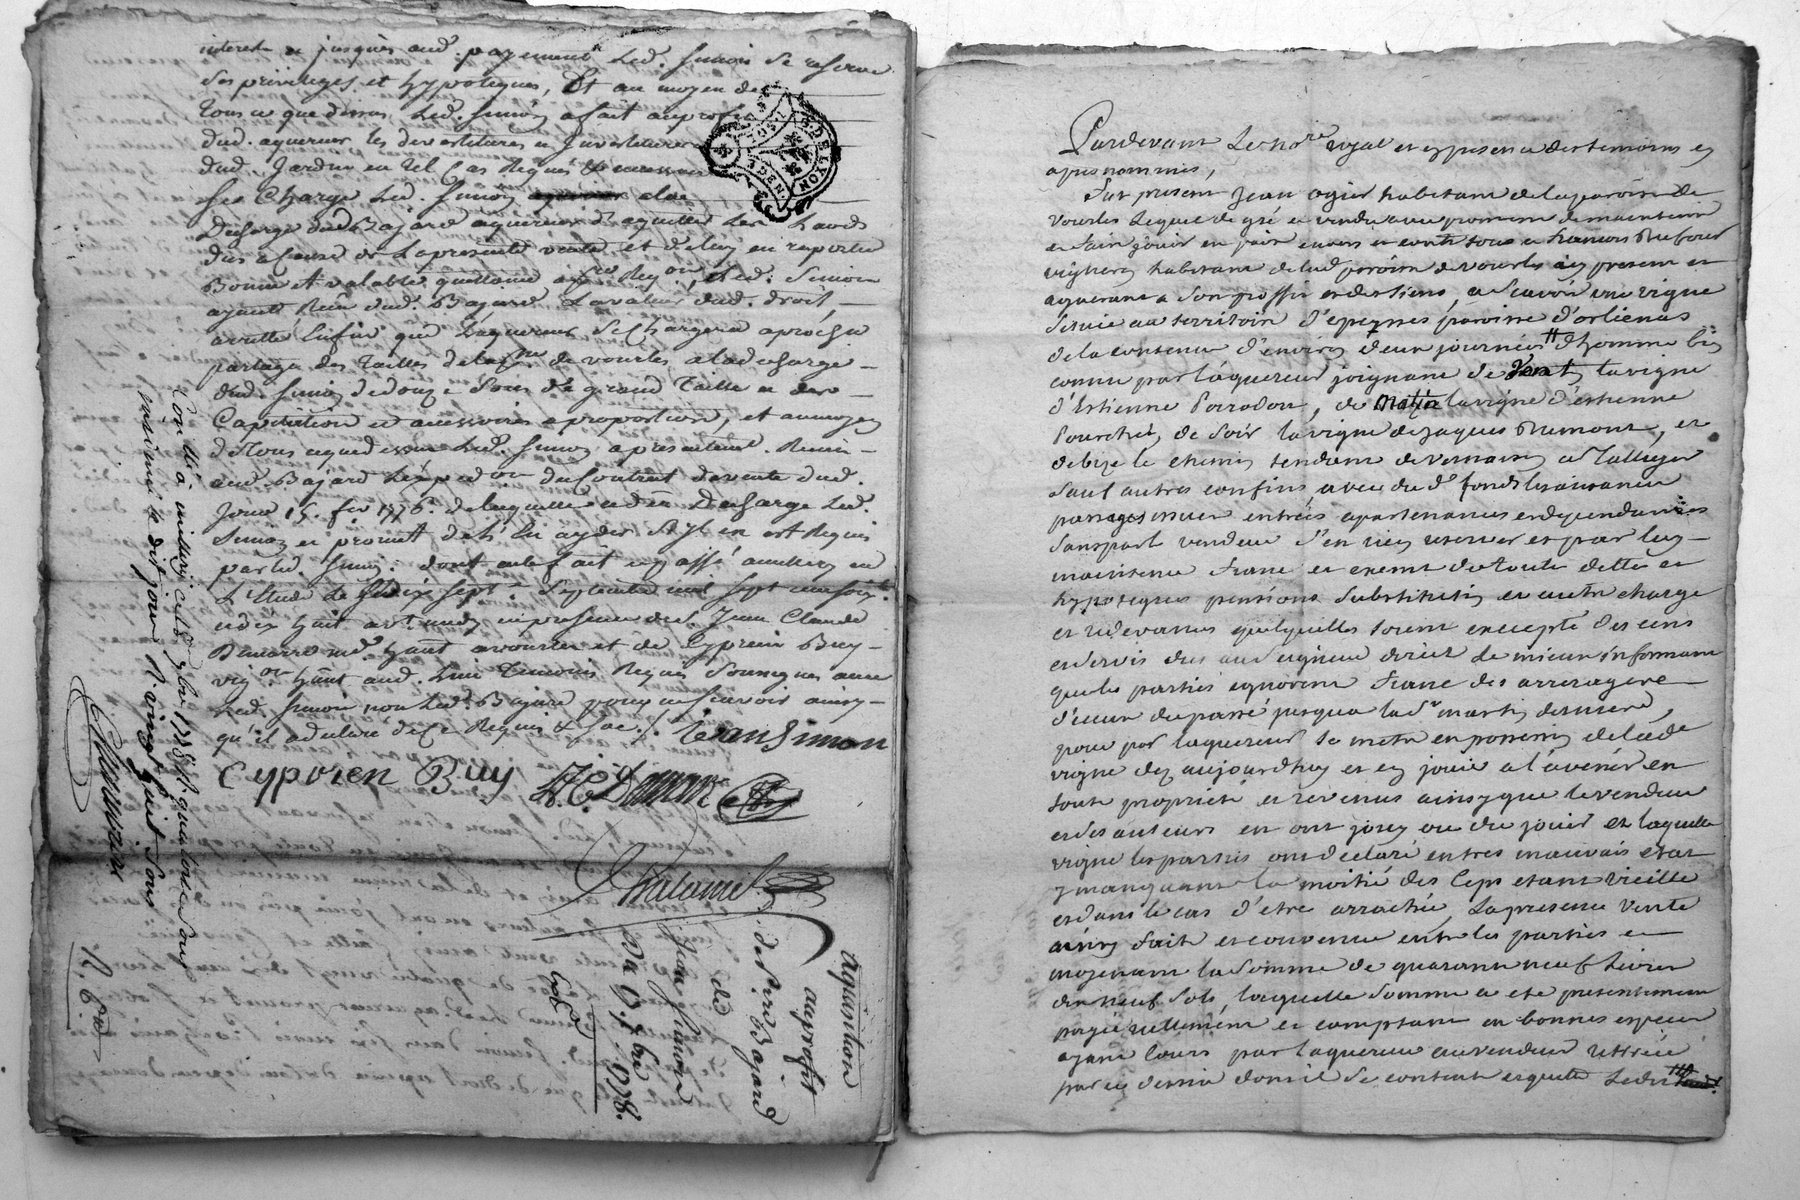 interest et jusques aud. payement led. Simon se reserve
ses privileges et hypoteques, Et au moyen de
tous ce que dessus, led. Simon a fait au profit
dud. aquereur les devestitures et Investitures
dud. Jardin en tel Cas Requis & necessaire
se Charge led. Simon
Decharge dud. Bajard aquereur d'aquitter les Lauds
dus a cause de la presente vente et de luy en raporter
Bonne et valable quittance led. Simon
ayant Reçu dud. Bajard la valeur dud. droit,
arretté Enfin que l'aquereur se Chargera
partage des tailles de la de vourles a la decharge
dud. Simon de douze Sous de grand Taille et des
Capitation et accessoires a proportion, et au moyen
de tous ce que dessus led. Simon a presentement Remis
aud. Bajard l'expedon du Contrat de vente dud.
Jour 15. fev 1776. de laquelle Decharge led.
Simon et promet de l'en ayder s'il en est Requis
par led. Simon. dont acte fait et passé aud.
L'Etude le dix sept Septembre mil sept cent soixte
et dix huit avt midy en presence de s. Jean Claude
hant a vourles et de Cyprien Buy
vigon hant aud. Lieu Temoins Requis Soussignés avec
led. Simon non led. Bajard pour ne scavoir ainsy
qu'il a declaré de ce Requis & Soe. /. Jean Simon
Cyprien Buy
Con llé à millery ce 1778 R. quatorze sous
insinué le dit jour R. vingt huit sous
R. Exp
aquisition
au profit
de Pierre Bajard
de
Jean Simon
Du 17. 7bre 1778.
Exp
G. DE LYON
Pardevant Le Nore royal et en presence des temoins en
apres nommés,
Fut present Jean ogier habitant de la paroisse de
vourles Lequel de gré a vendu avec promesse de maintenir
et faire jouir en paix envers et contre tous a francois Dubour
vigneron habitant de lad. paroisse de vourles icy present et
aquerant a son proffit et des siens, a Scavoir une vigne
Scituée au territoire d'epeysses paroisse d'orlienas
de la contenue d'environ deux journées d'homme bien
connu par l'aquereur joignant de la vigne
d'Estienne Porrodon, de matin la vigne d'estienne
Pourchié, de Soir la vigne de Jaques Dumont, et
de bize le chemin tendant de vernaison a Talluger
Sauf autres confins, avec du d. fonds les aisances
passages issues entrées apartenances et dependances
Sans par le vendeur s'en rien reserver et par luy
maintenu franc et exemt de toute dettes et
hypoteques pensions Substitution et autre charge
et redevances quelquelles soient excepté des cens
et servis dus au Seigneur direct de mieux informant
que les parties ignorent franc des arrerages
d'iceux du passé jusqua la St martin derniere,
pour par laquereur se mettre en possession de lade
vigne des aujourd'huy et en jouir a l'avenir en
toute proprieté et revenus ainsy que le vendeur
et ses auteurs en ont jouy ou du jouir et laquelle
vigne les parties ont declaré en tres mauvais etat
y manquant la moitié des Ceps etant vieille
et dans le cas d'etre arrachée, La presente vente
ainsy fait et convenue entre les parties et
moyenant la somme de quarante neuf Livres
dix neuf sols, laquelle somme a eté presentement
payée reellement et comptant en bonnes especes
ayant Cours par laquereur au vendeur retirée
par ce dernier dont il se contente et quitte